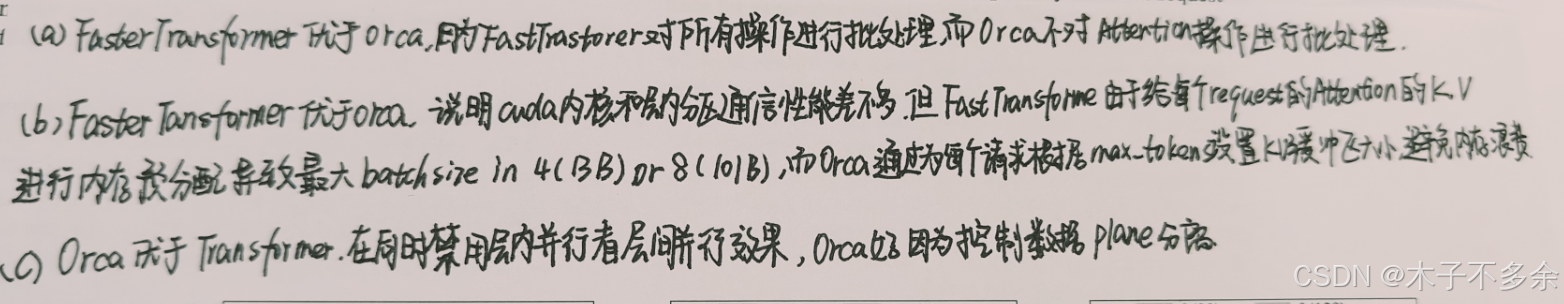 (a) FasterTransformer 优于 orca,因为FastTrastorer对所有操作进行批处理,而Orca不对 Attention操作进行批处理.
(b) Faster Tansformer 优于orca. 说明cuda内核和层内分区通信性能差不多.但 FastTransforme 由于给每个request的Attention的K.V
进行内存预分配导致最大 batchsize in 4(13B) or 8(101B),而Orca通过为每个请求根据max_token设置KV缓冲区大小避免内存浪费
(C) Orca 优于 Transformer.在同时禁用层内并行看层间并行效果,Orca好因为控制数据 plane分离
CSDN @木子不多余